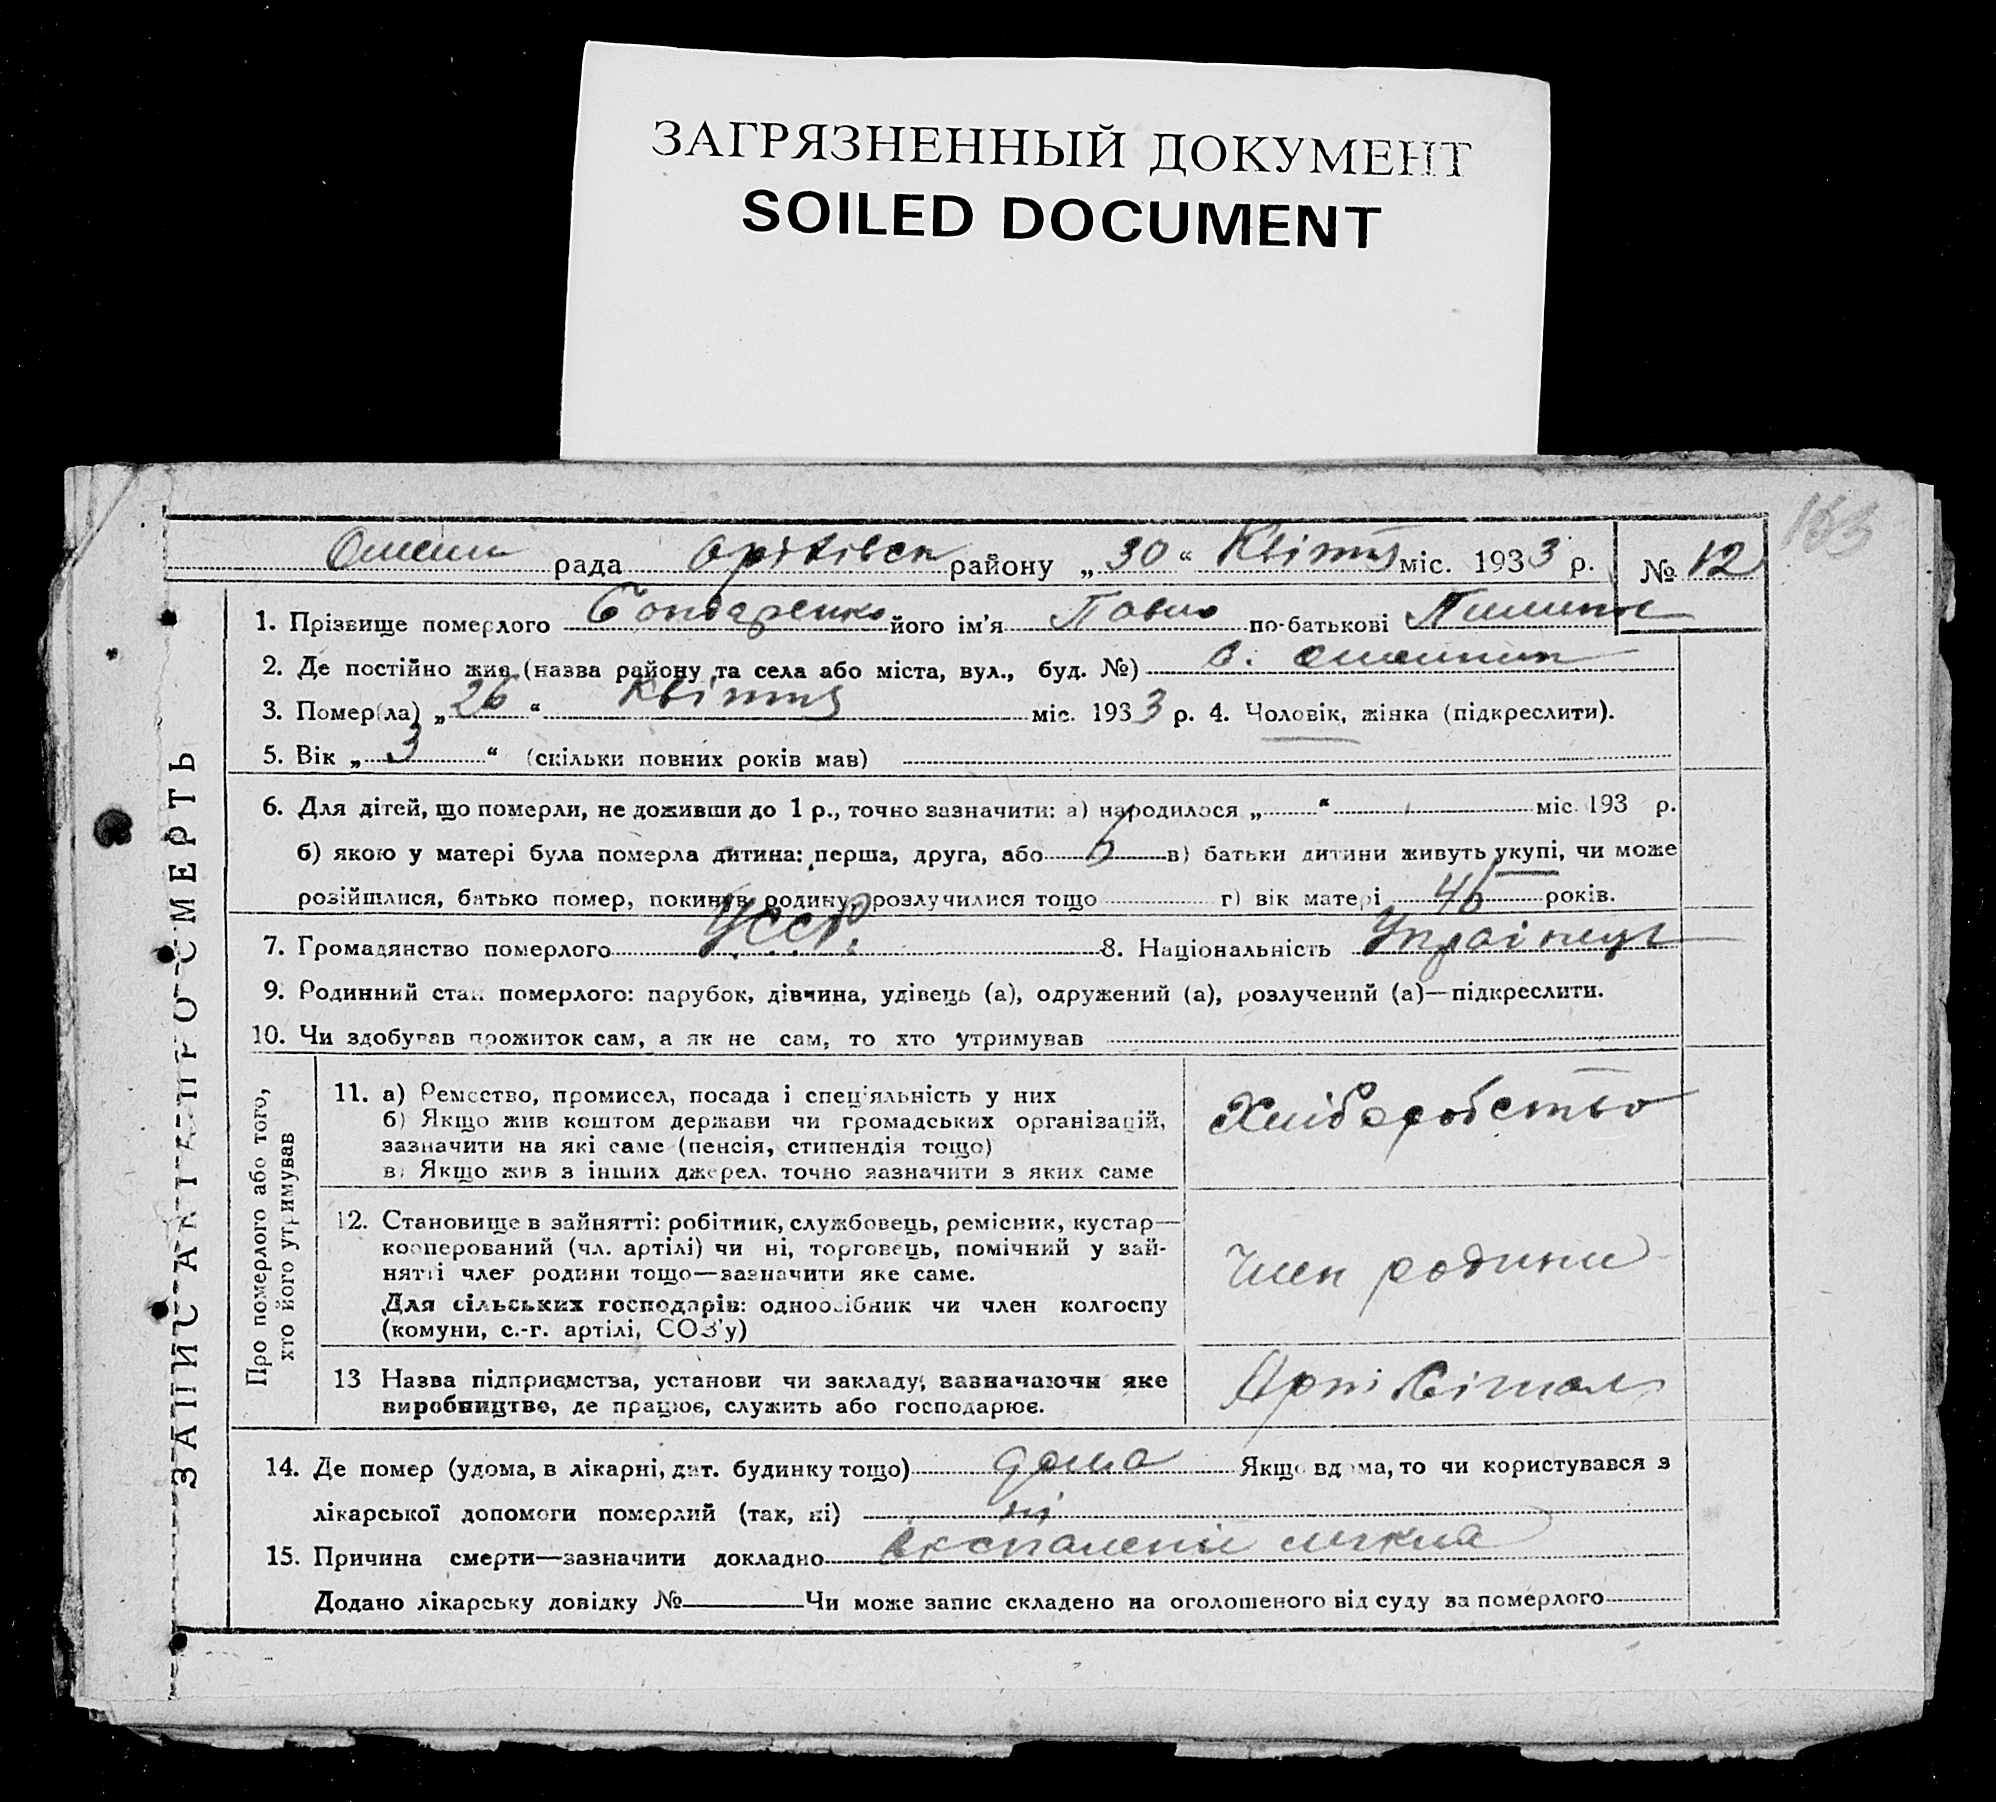 ЗАГРЯЗНЕННЫЙ ДОКУМЕНТ
SOILED DOCUMENT
163
рада району „30“ Квітня міс. 1933 р. № 12
1. Прізвище померлого Бондаренко його ім'я Павло по-батькові
2. Де постійно жив (назва району та села або міста, вул., буд. №) с.
3. Помер(ла) „26“ Квітня міс. 1933 р. 4. Чоловік, жінка (підкреслити).
5. Вік „3“ (скільки повних років мав)
6. Для дітей, що померли, не доживши до 1 р., точно зазначити: а) народилося „ “ міс. 193 р.
б) якою у матері була померла дитина: перша, друга, або 6 в) батьки дитини живуть укупі, чи може
розійшлися, батько помер, покинув родину, розлучилися тощо г) вік матері років.
7. Громадянство померлого УССР. 8. Національність Українець
9. Родинний стан померлого: парубок, дівчина, удівець (а), одружений (а), розлучений (а)—підкреслити.
10. Чи здобував прожиток сам, а як не сам, то хто утримував
ЗАПИС АКТА ПРО СМЕРТЬ
Про померлого або того,
хто його утримував
11. а) Ремество, промисел, посада і спец'яльність у них
б) Якщо жив коштом держави чи громадських організацій,
зазначити на які саме (пенсія, стипендія тощо)
в) Якщо жив з інших джерел, точно зазначити з яких саме
Хліборобство
12. Становище в зайнятті: робітник, службовець, ремісник, кустар—
кооперований (чл. артілі) чи ні, торговець, помічний у зай-
нятті член родини тощо—зазначити яке саме.
Для сільських господарів: одноосібник чи член колгоспу
(комуни, с.-г. артілі, СОЗ'у)
Член родини
13 Назва підприємства, установи чи закладу, зазначаючи яке
виробництво, де працює, служить або господарює.
14. Де помер (удома, в лікарні, дит. будинку тощо) дома Якщо вдома, то чи користувався з
лікарської допомоги померлий (так, ні) ні
15. Причина смерти—зазначити докладно
Додано лікарську довідку № Чи може запис складено на оголошеного від суду за померлого